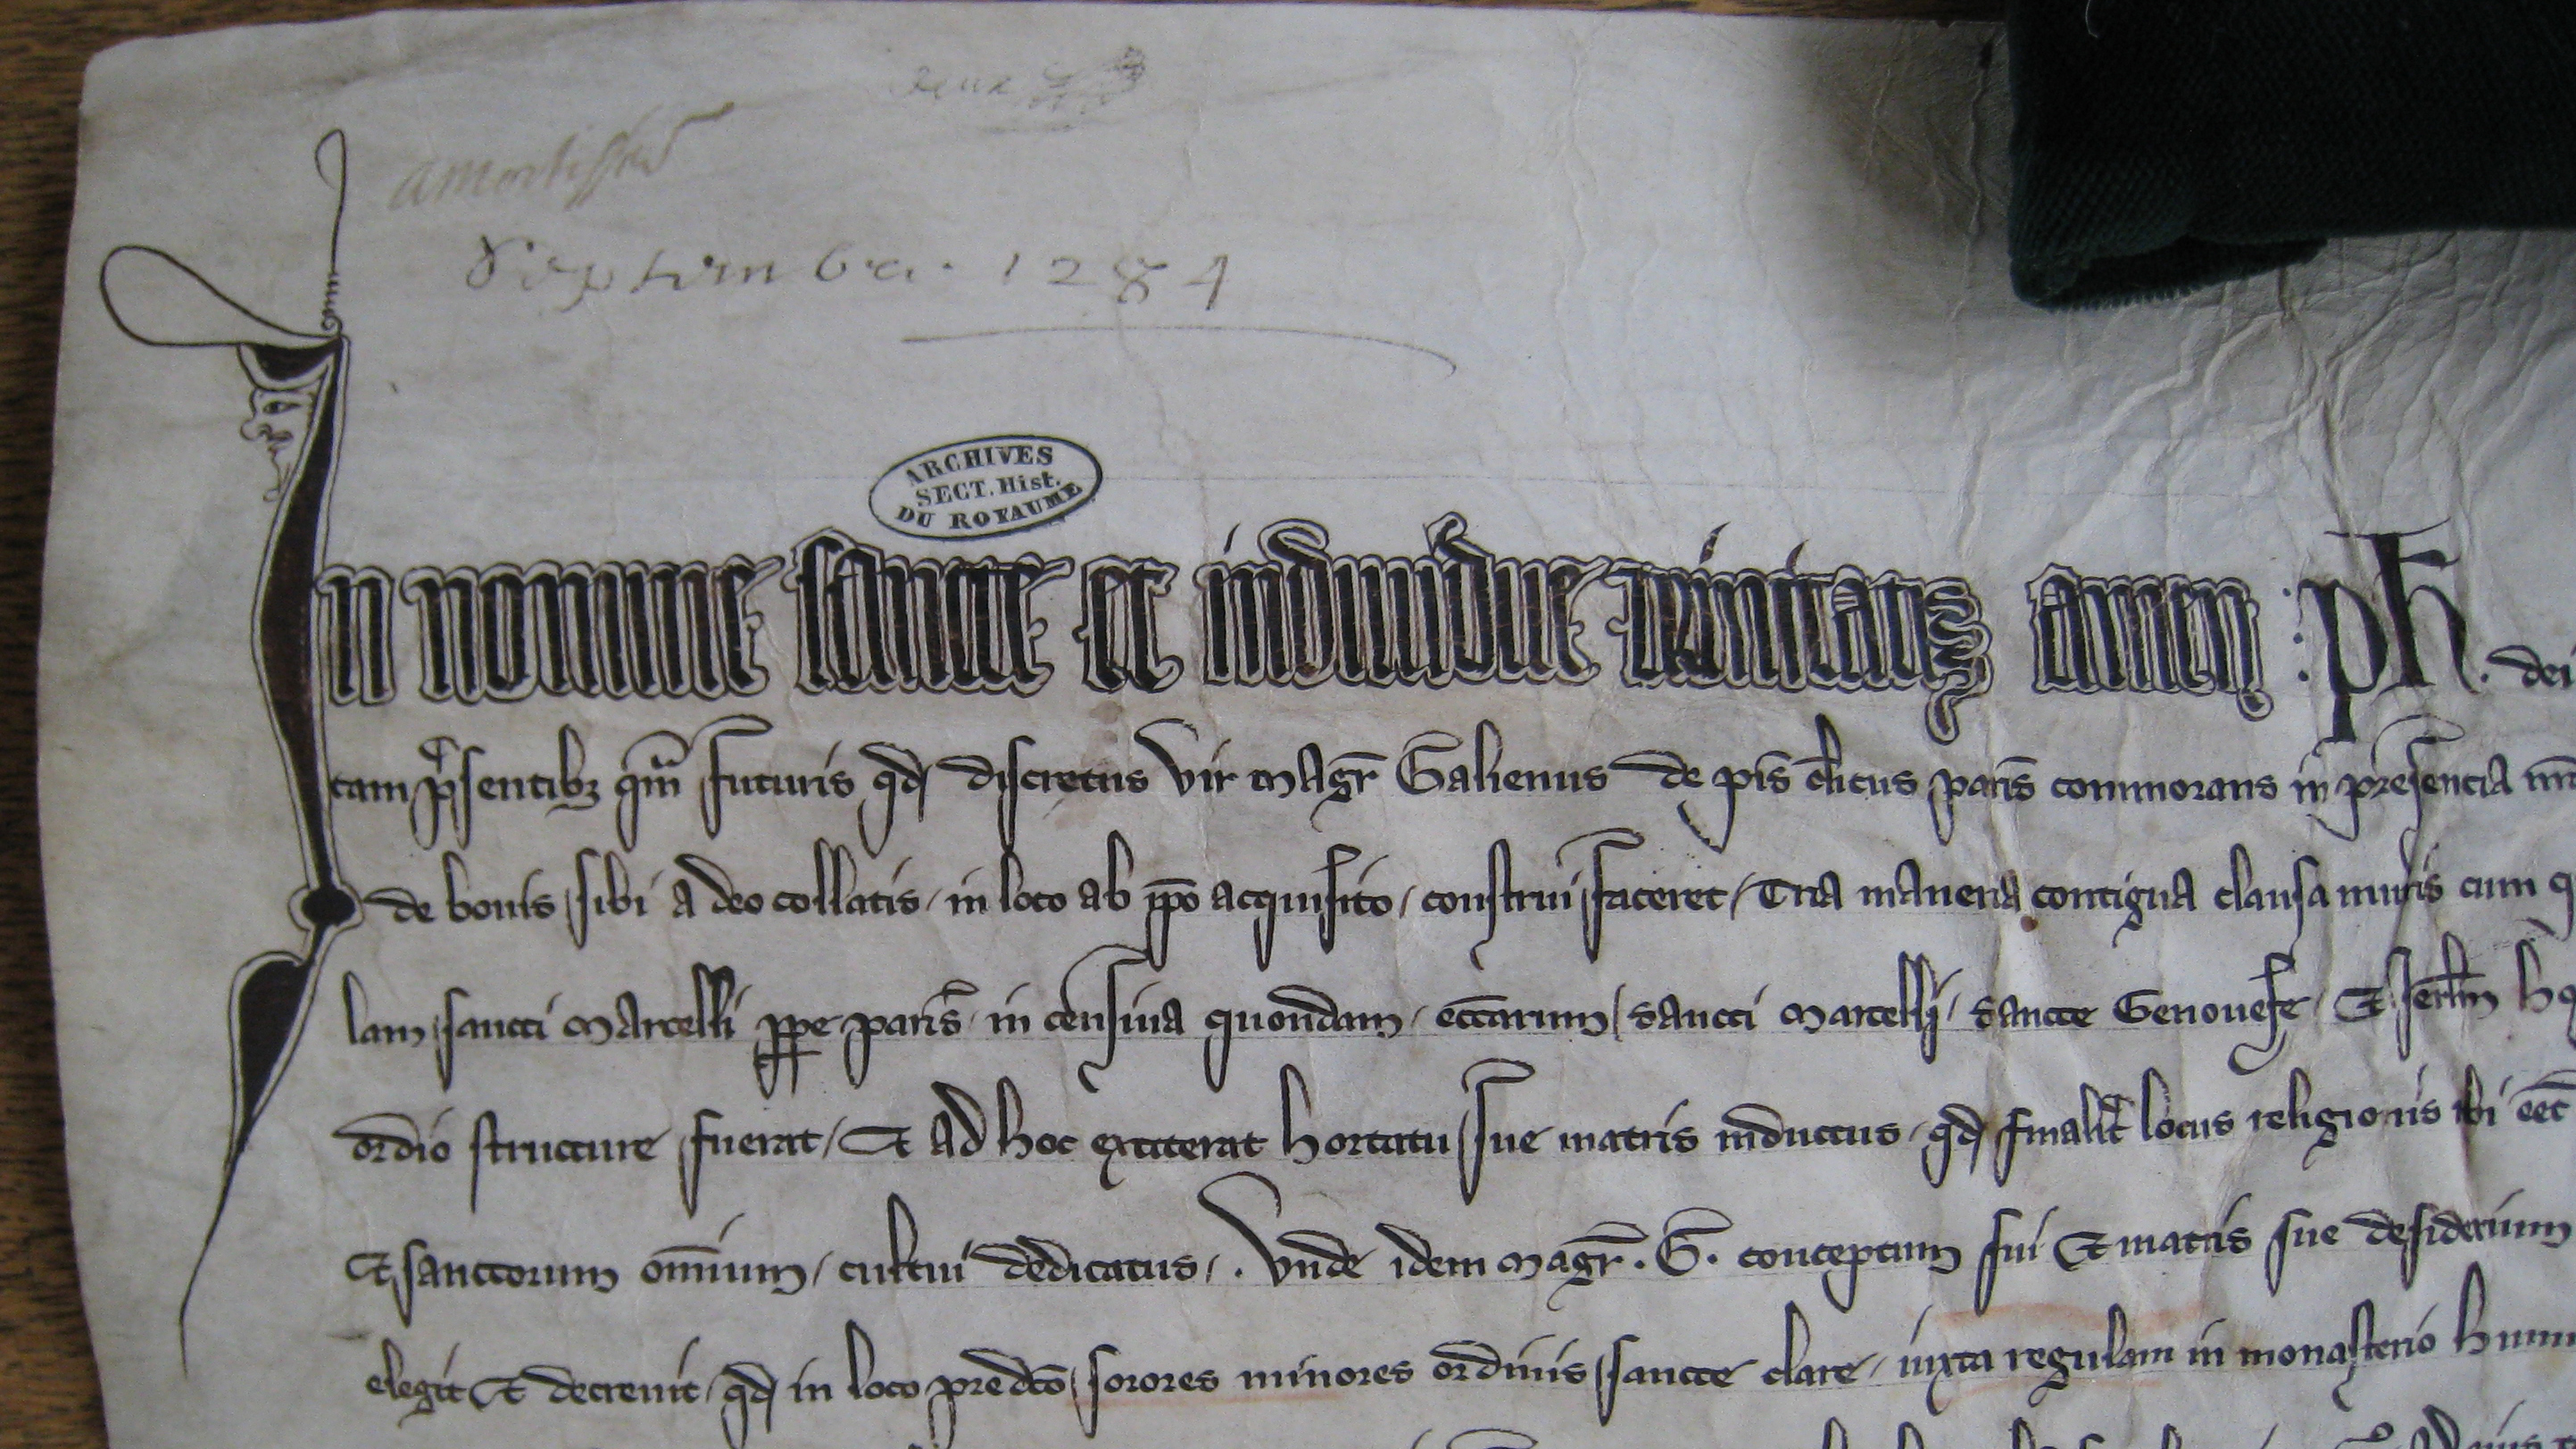 amortissem
September 1284
ARCHIVES
SECT. Hist.
DU ROYAUME
In nomine sancte et individue trinitatis amen : Ph. dei
tam p̄sentibꝫ qm̄ futuris qd discretus vir magr̄ Galienus de pis̄ cl̄icus paris̄ commorans in presencia
de bonis sibi a deo collatis / in loco ab ip̄o acquisito / construi faceret / Tria maneria contigua clausa muris cum
lam sancti marcelli ꝓpe paris̄ in censiua quondam / eccārum / sancti marcelli / sancte Genouefe / Et
ordio structure fuerat / Et ad hoc extiterat hortatu sue matris inductus / qd finalit̄ locus religionis ibi eēt
Et sanctorum om̄ium / cultui dedicatus / . Vnde idem magr̄ . G . conceptum sui Et matris sue desiderium
elegit Et decreuit / qd in loco predc̄o / sorores minores ordinis sancte clare / iuxta regulam in monasterio